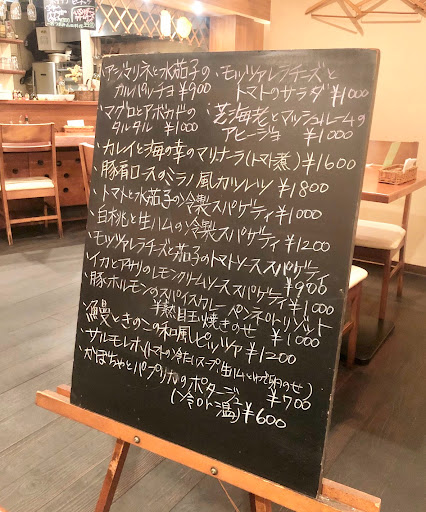 ・アジマリネと水茄子の
カルパッチョ ¥900
・モッツァレラチーズと
トマトのサラダ ¥1000
・マグロとアボカドの
タルタル ¥1000
・芝海老とマッシュルームの
アヒージョ ¥1000
・カレイと海の幸のマリナーラ(トマト煮) ¥1600
・豚肩ロースのミラノ風カツレツ ¥1800
・トマトと水茄子の冷製スパゲティ ¥1000
・白桃と生ハムの冷製スパゲティ ¥1200
・モッツァレラチーズと茄子のトマトソーススパゲティ
¥900
・イカとアサリのレモンクリームソーススパゲティ ¥1000
・豚ホルモンのスパイスカレー ペンネorリゾット
半熟目玉焼きのせ ¥1000
・鰻ときのこの和風ピッツァ ¥1200
・サルモレホ(トマトの冷たいスープ、生ハムとゆで卵のせ)
¥700
・かぼちゃとパプリカのポタージュ
(冷or温) ¥600